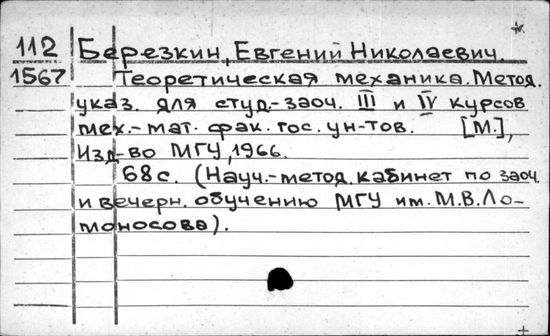 112 Березкин, Евгений Николаевич.
1567 Теоретическая механика. Метод.
указ. для студ.-заоч. III и IV курсов
мех.-мат. фак. гос. ун-тов. [М.],
Изд-во МГУ, 1966.
68 с. (Науч.-метод. кабинет по заоч.
и вечерн. обучению МГУ им. М.В. Ло-
моносова).